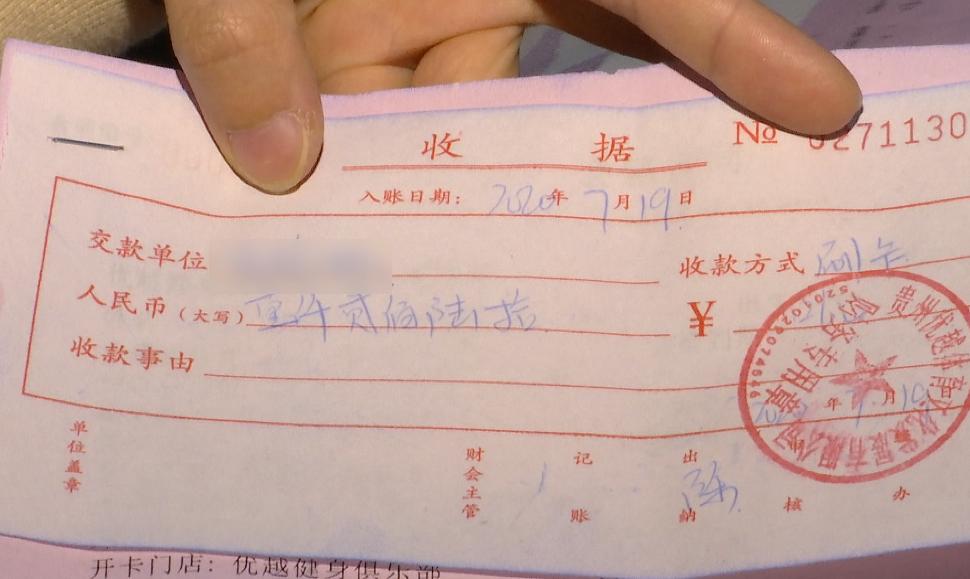 收 据
№ 0271130
入账日期: 2020年 7月19日
交款单位
收款方式 刷卡
人民币(大写) 壹仟贰佰陆拾
¥
收款事由
年 月19日
单位盖章
财会主管
记账
出纳 陈
核
办
财务专用章
开卡门店: 优越健身俱乐部